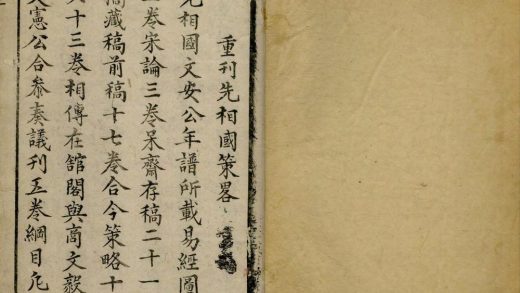 重刊先相國策畧
先相國文安公年譜所載易經圖
卷宋論三卷呆齋存稿二十一
藏稿前稿十七卷合今策略十
十三卷相傳在舘閣與商文毅
文憲公合參奏議刊五卷綱目凡